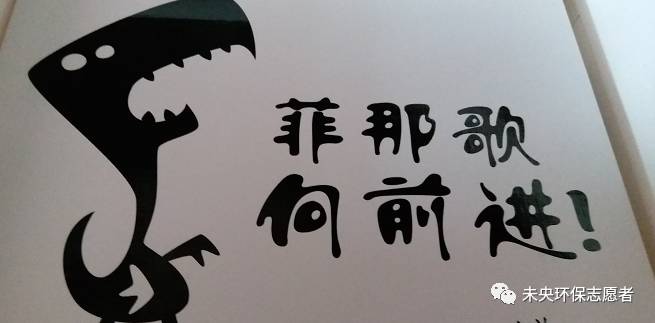 菲那歌
向前进!
未央环保志愿者